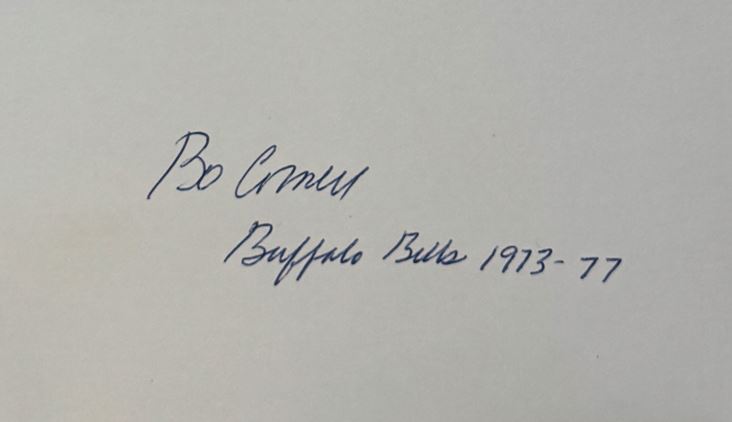 Bo Cornell
Buffalo Bills 1973-77